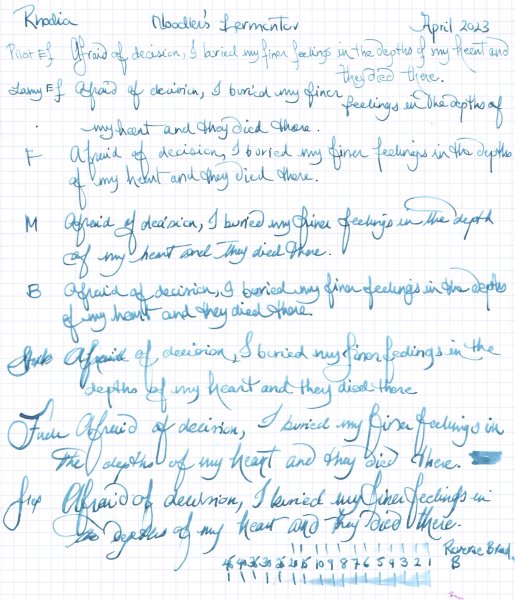 Rhodia Noodler's Fermentor April 2023
Pilot Ef Afraid of decision, I buried my finer feelings in the depths of my heart and
they died there.
Lamy Ef Afraid of decision, I buried my finer feelings in the depths of
my heart and they died there.
F Afraid of decision, I buried my finer feelings in the depths
of my heart and they died there.
M Afraid of decision, I buried my finer feelings in the depth
of my heart and they died there.
B Afraid of decision, I buried my finer feelings in the depths
of my heart and they died there.
Afraid of decision, I buried my finer feelings in the
depths of my heart and they died there
Fude Afraid of decision, I buried my finer feelings in
the depths of my heart and they died there.
Afraid of decision, I buried my finer feelings in
the depths of my heart and they died there.
Reverse
45 40 35 30 25 20 15 10 9 8 7 6 5 4 3 2 1 B